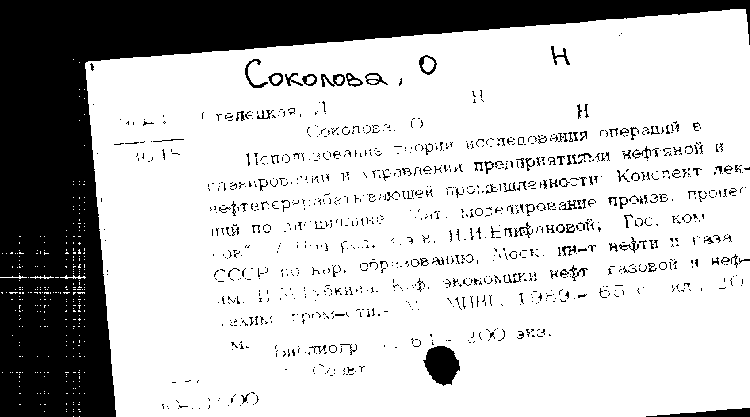 Соколова, О Н
Стелецкая, Л Н
Соколова, О Н
Использование теории исследования операций в
планировании и управлении предприятиями нефтяной и
нефтеперерабатывающей промышленности: Конспект лек-
ций по дисциплине "Мат. моделирование произв. процес-
сов" / Под ред. Н.И.Епифановой; Гос. ком
СССР по нар. образованию, Моск. ин-т нефти и газа
им. И.М.Губкина, Каф. экономики нефт газовой и неф-
техим. пром-сти.- М. МИНГ, 1989.- 65 с ил., 20
м.
Библиогр с. 64 - 200 экз.